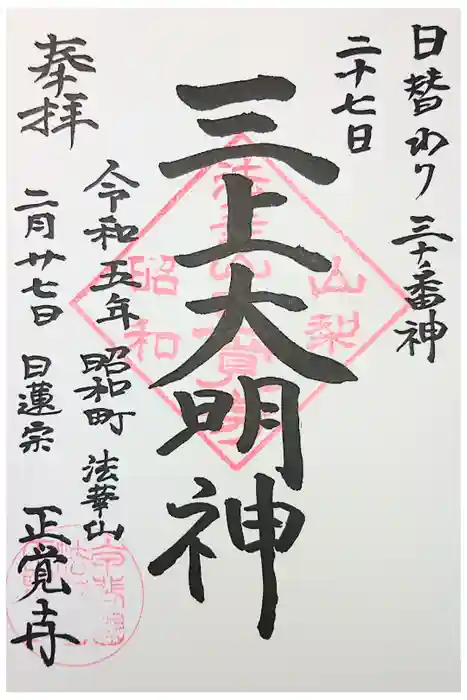 日替わり 三十番神
二十七日
三上大明神
奉拝
令和五年 昭和町 法華山
二月廿七日 日蓮宗 正覚寺
山梨
昭和